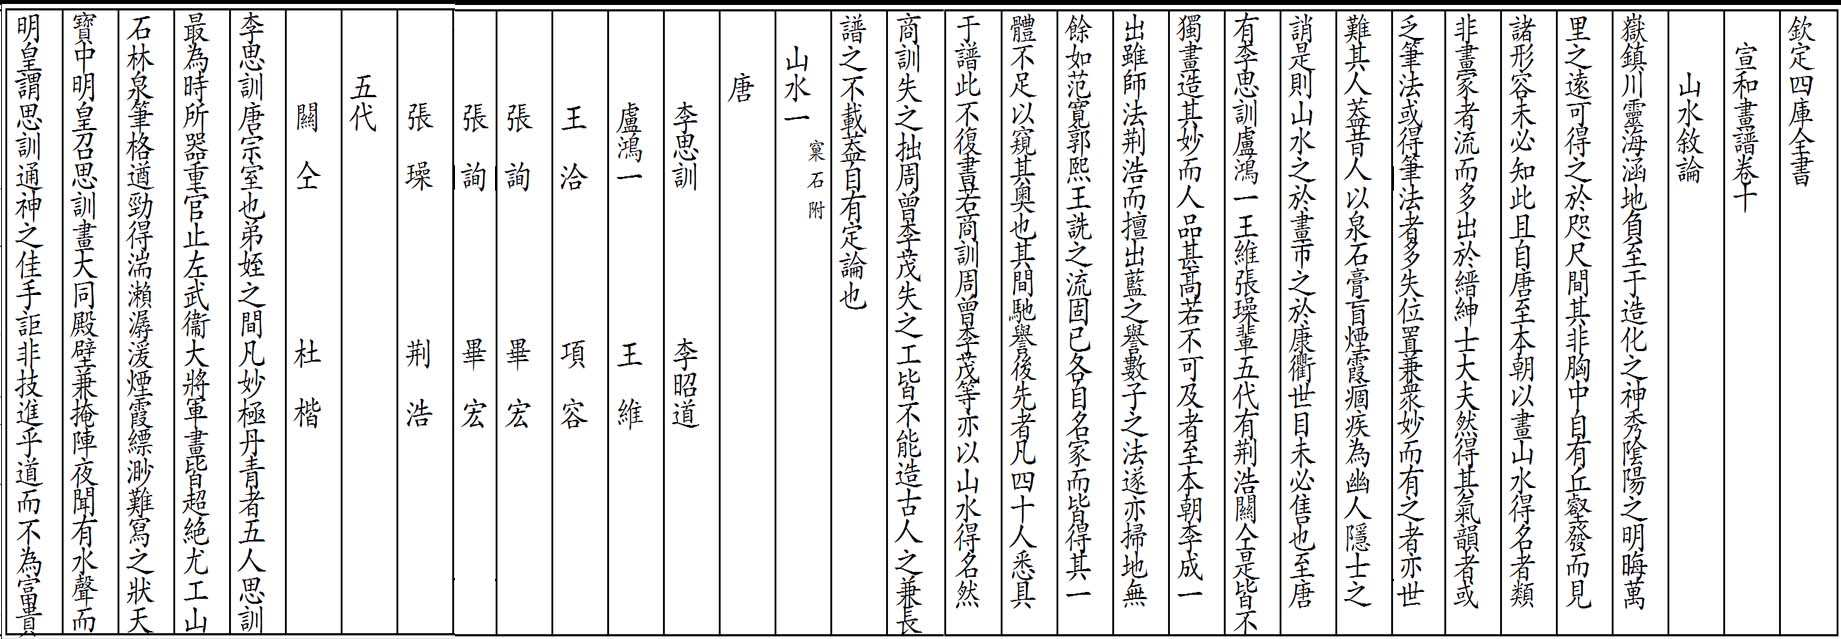 欽定四庫全書
宣和畫譜卷十
山水敘論
嶽鎮川靈海涵地負至于造化之神秀隂陽之明晦萬
里之遠可得之於咫尺間其非胸中自有丘壑發而見
諸形容未必知此且自唐至本朝以畫山水得名者類
非畫家者流而多出於縉紳士大夫然得其氣韻者或
乏筆法或得筆法者多失位置兼衆妙而有之者亦世
難其人葢昔人以泉石膏肓煙霞痼疾為幽人隱士之
誚是則山水之於畫市之於康衢世目未必售也至唐
有李思訓盧鴻一王維張璪輩五代有荆浩關仝是皆不
獨畫造其妙而人品甚髙若不可及者至本朝李成一
出雖師法荆浩而擅出藍之譽數子之法遂亦掃地無
餘如范寛郭熙王詵之流固已各自名家而皆得其一
體不足以窺其奥也其間馳譽後先者凡四十人悉具
于譜此不復書若商訓周曾李茂等亦以山水得名然
商訓失之拙周曾李茂失之工皆不能造古人之兼長
譜之不載葢自有定論也
山水一 窠石附
唐
李思訓 李昭道
盧鴻一 王維
王洽 項容
張詢 畢宏
張詢 畢宏
張璪 荆浩
五代
關仝 杜楷
李思訓唐宗室也弟姪之間凡妙極丹青者五人思訓
最為時所器重官止左武衞大將軍畫皆超絶尤工山
石林泉筆格遒勁得湍瀨潺湲煙霞縹渺難寫之狀天
寶中明皇召思訓畫大同殿壁兼掩障夜聞有水聲而
明皇謂思訓通神之佳手詎非技進乎道而不為富貴